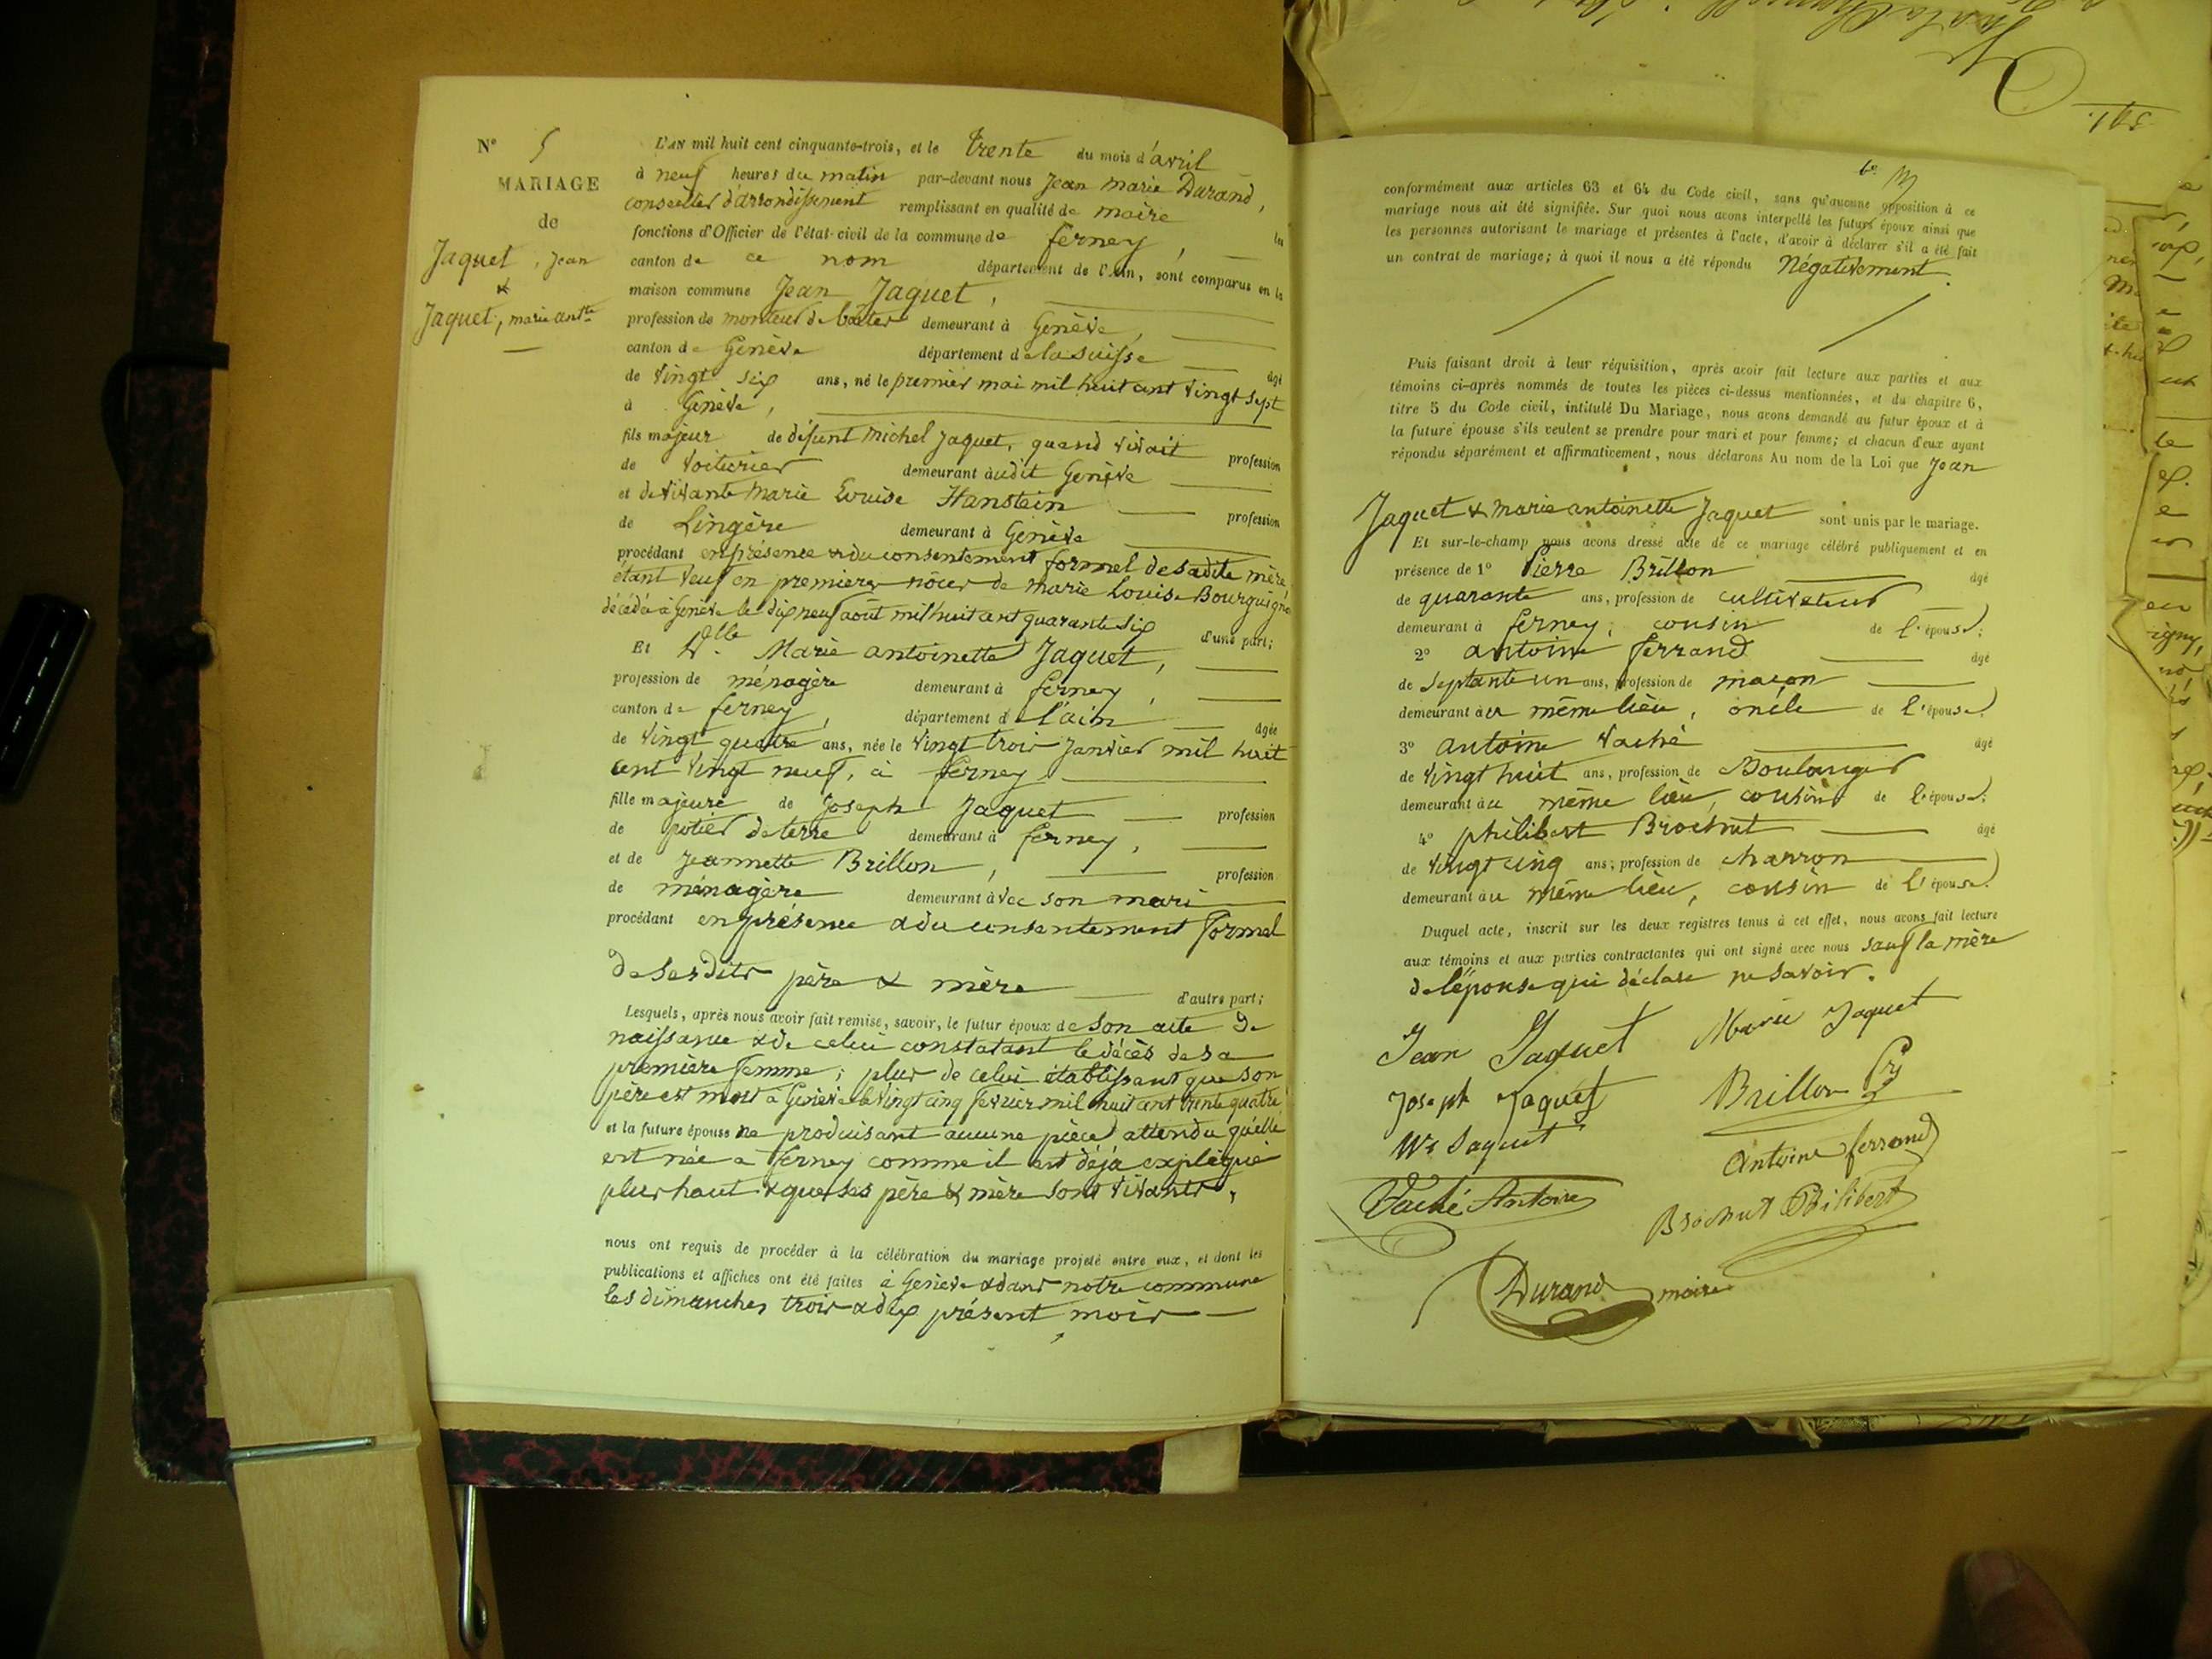 N° 5
MARIAGE
de
Jaquet, Jean
&
Jaquet, marie antte
L'AN mil huit cent cinquante-trois, et le trente du mois d'avril
à neuf heures du matin par-devant nous Jean marie Durand,
conseiller d'arrondissement remplissant en qualité de maire les
fonctions d'Officier de l'état-civil de la commune de ferney,
canton de ce nom département de l'Ain, sont comparus en la
maison commune Jean Jaquet,
profession de monteur de boîtes demeurant à Genève,
canton de Genève département de la suisse âgé
de vingt six ans, né le premier mai mil huit cent vingt sept
à Genève,
fils majeur de défunt michel Jaquet, quand vivait profession
de voiturier demeurant audit Genève
et de vivante marie Louise Hanstein profession
de Lingère demeurant à Genève
procédant en présence & du consentement formel de sadite mère
étant veuf en premières nôces de marie Louise Bourguigne
décédée à Genève le dix neuf août mil huit cent quarante six
d'une part;
Et Dlle Marie antoinette Jaquet,
profession de ménagère demeurant à ferney,
canton de ferney, département de l'ain âgée
de vingt quatre ans, née le vingt trois janvier mil huit
cent vingt neuf, à ferney
fille majeure de Joseph Jaquet profession
de potier de terre demeurant à ferney,
et de Jeannette Brillon, profession
de ménagère demeurant avec son mari
procédant en présence & du consentement formel
de ses dits père & mère d'autre part;
Lesquels, après nous avoir fait remise, savoir, le futur époux de son acte de
naissance & de celui constatant le décès de sa
première femme; plus de celui établissant que son
père est mort à Genève le vingt cinq fevrier mil huit cent trente quatre
et la future épouse ne produisant aucune pièce attendu qu'elle
est née à ferney comme il est déjà expliqué
plus haut & que ses père & mère sont vivants,
nous ont requis de procéder à la célébration du mariage projeté entre eux, et dont les
publications et affiches ont été faites à Genève & dans notre commune
les dimanches trois & dix présent mois
conformément aux articles 63 et 64 du Code civil, sans qu'aucune opposition à ce
mariage nous ait été signifiée. Sur quoi nous avons interpellé les futurs époux ainsi que
les personnes autorisant le mariage et présentes à l'acte, d'avoir à déclarer s'il a été fait
un contrat de mariage; à quoi il nous a été répondu Négativement.
Puis faisant droit à leur réquisition, après avoir fait lecture aux parties et aux
témoins ci-après nommés de toutes les pièces ci-dessus mentionnées, et du chapitre 6,
titre 5 du Code civil, intitulé Du Mariage, nous avons demandé au futur époux et à
la future épouse s'ils veulent se prendre pour mari et pour femme; et chacun d'eux ayant
répondu séparément et affirmativement, nous déclarons Au nom de la Loi que Jean
Jaquet & marie antoinette Jaquet sont unis par le mariage.
Et sur-le-champ nous avons dressé acte de ce mariage célébré publiquement et en
présence de 1° Pierre Brillon âgé
de quarante ans, profession de cultivateur
demeurant à ferney, cousin de l'épouse;
2° antoine ferrand âgé
de septante un ans, profession de maçon
demeurant au même lieu, oncle de l'épouse;
3° antoine vaché âgé
de vingt huit ans, profession de Boulanger
demeurant au même lieu, cousin de l'épouse;
4° philibert Brochut âgé
de vingt cinq ans, profession de charron
demeurant au même lieu, cousin de l'épouse.
Duquel acte, inscrit sur les deux registres tenus à cet effet, nous avons fait lecture
aux témoins et aux parties contractantes qui ont signé avec nous sauf la mère
de l'épouse qui déclare ne savoir.
Jean Jaquet Marie Jaquet
Joseph Jaquet Brillon
Jaquet Antoine ferrand
Vaché Antoine Brochut Philibert
Durand maire